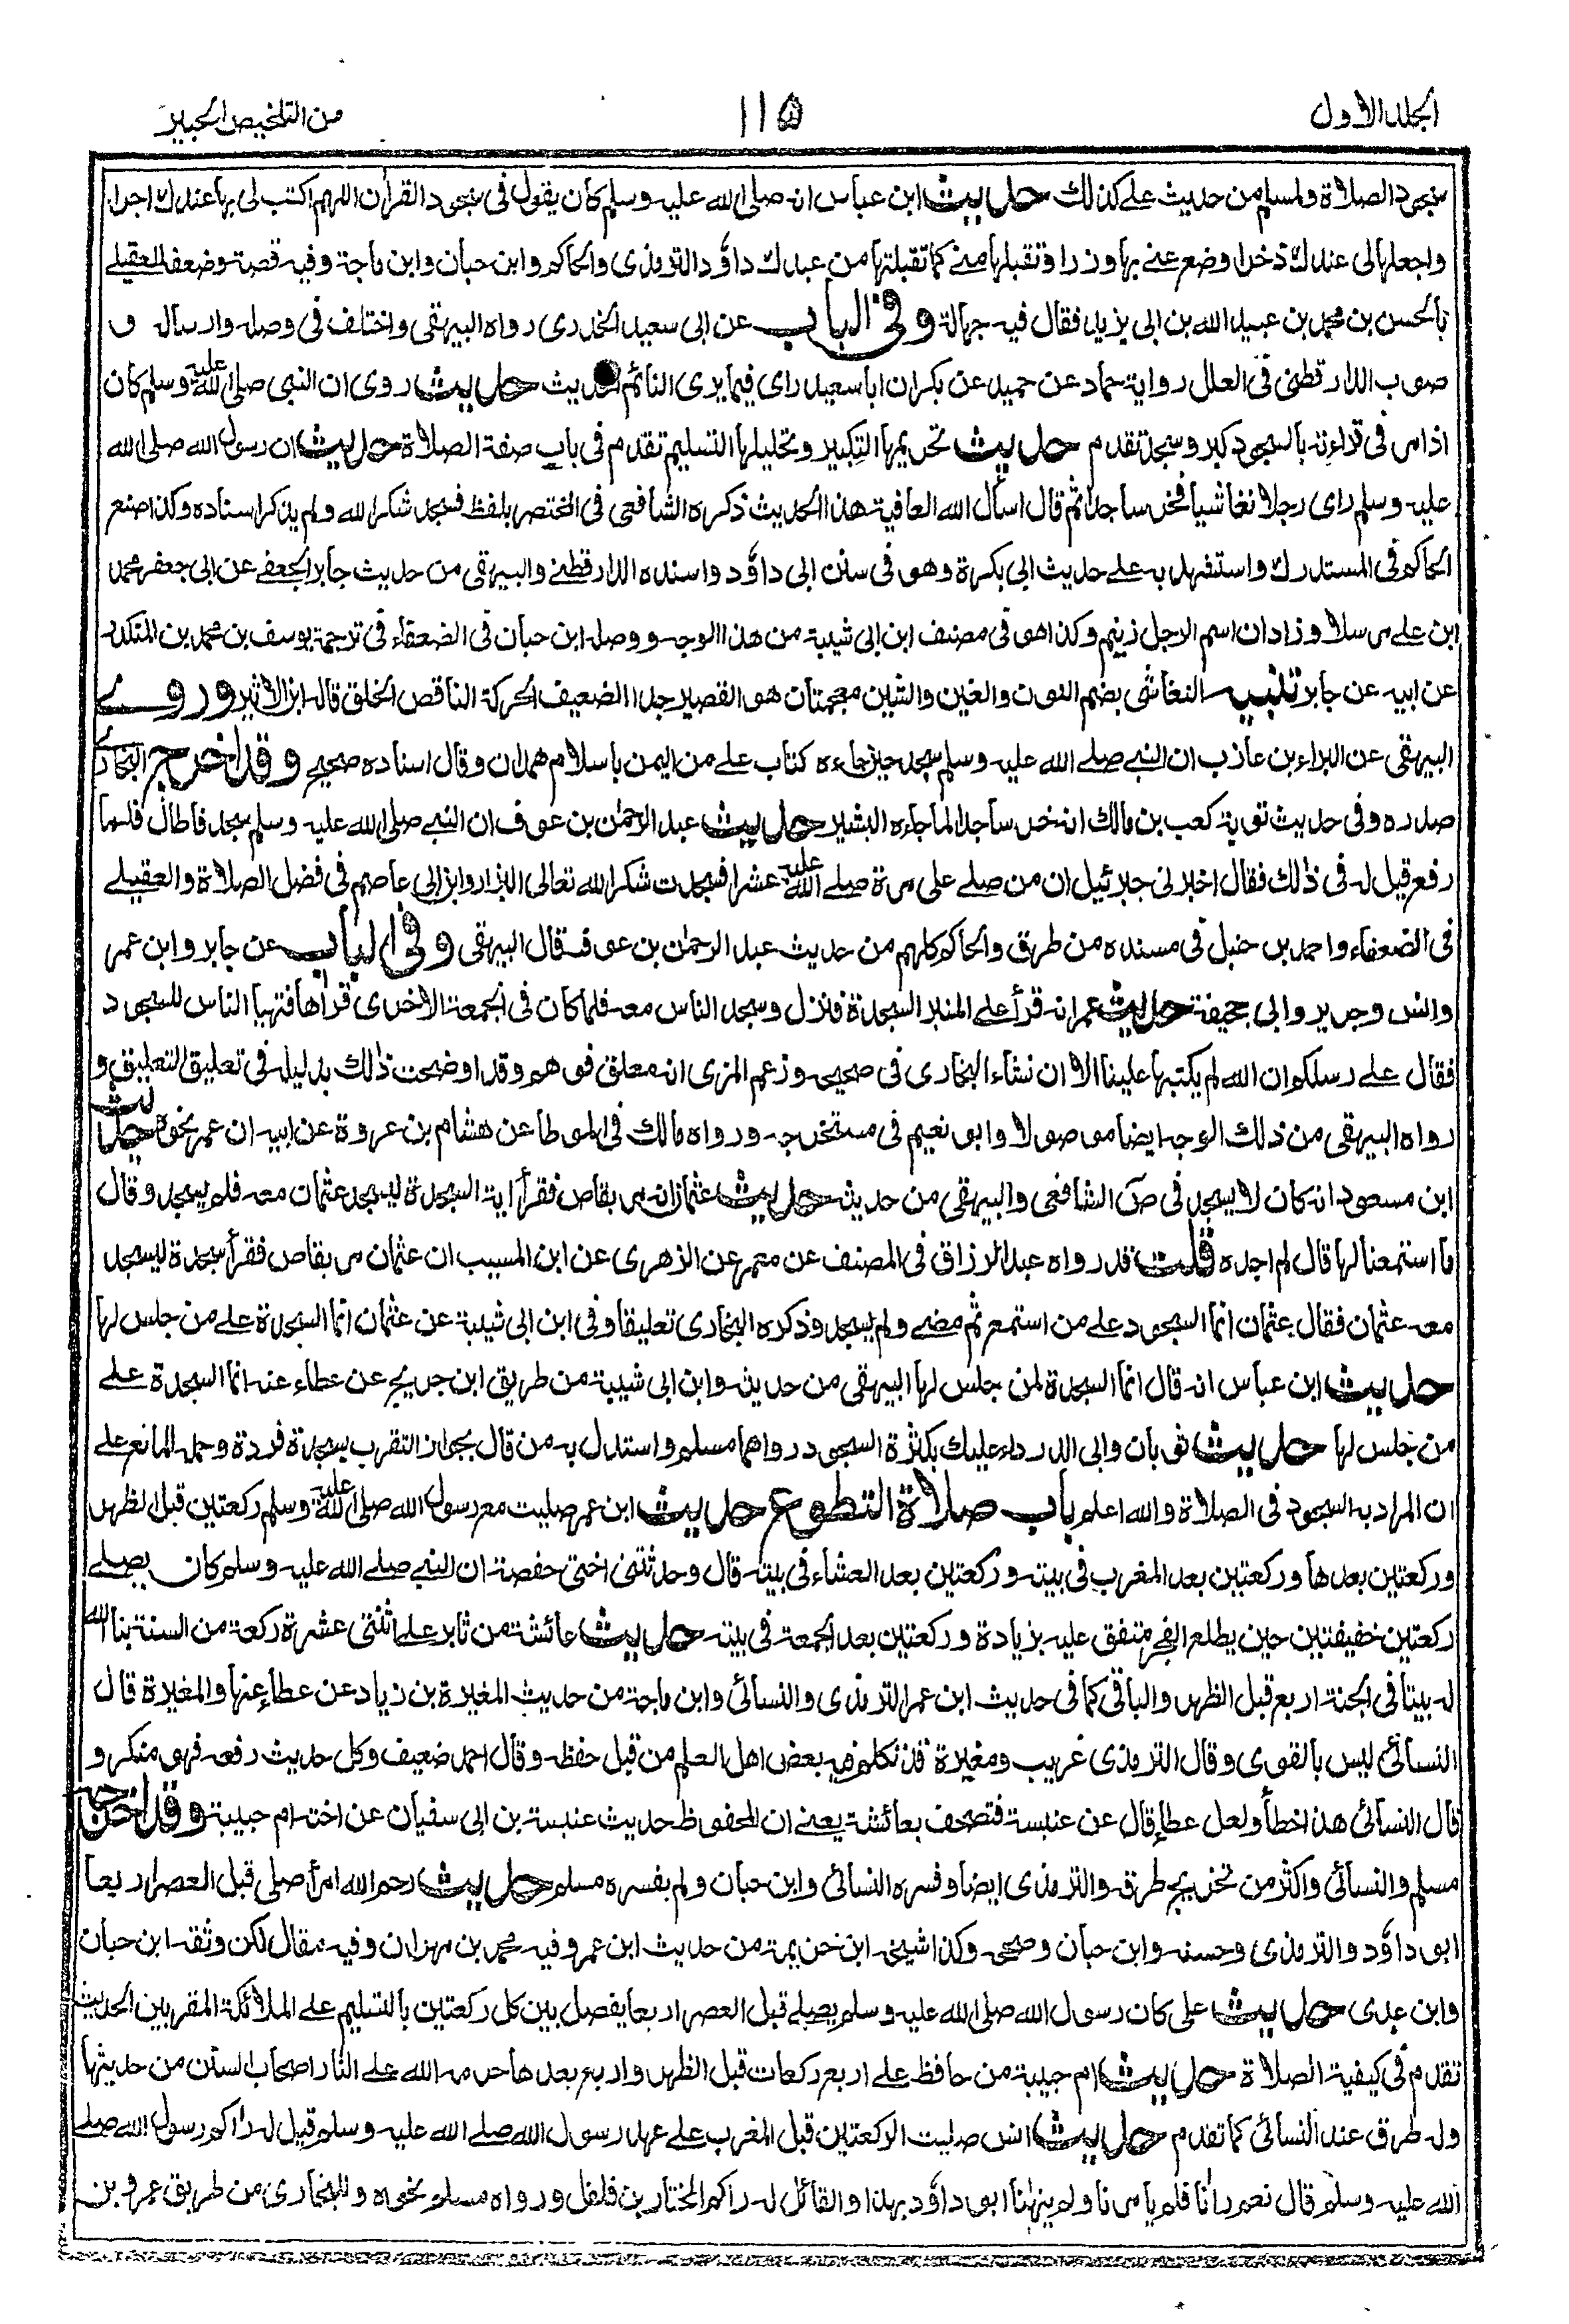 المجلد الاول
١١٥
من التلخيص الحبير
سجود الصلاة ولمسلم من حديث علے كذلك حديث ابن عباس انه صلى الله عليه وسلم كان يقول فى سجود القرآن اللهم اكتب لى بها عندك اجرا
واجعلها لى عندك ذخرا وضع عنے بها وزرا وتقبلها منے كما تقبلتها من عبدك داوٗد الترمذى والحاكم وابن حبان وابن ماجة وفيه قصة وضعفه العقيلے
بالحسن بن محمد بن عبيد الله بن ابى يزيد فقال فيه جهالة وفى الباب عن ابى سعيد الخدرى رواه البيهقى واختلف فى وصله وارساله و
صوب الدارقطنى فى العلل رواية حماد عن حميد عن بكر ان ابا سعيد راى فيما يرى النائم الحديث حديث روى ان النبى صلى الله عليه وسلم كان
اذا مر فى قراءته بالسجود كبر وسجد تقدم حديث تحريمها التكبير وتحليلها التسليم تقدم فى باب صفة الصلاة حديث ان رسول الله صلى الله
عليه وسلم راى رجلا نغاشيا فخر ساجدا ثم قال اسأل الله العافية هذا الحديث ذكره الشافعى فى المختصر بلفظ فسجد شكرا لله ولم يذكر اسناده وكذا صنع
الحاكم فى المستدرك واستشهد به علے حديث ابى بكرة وهو فى سنن ابى داوٗد واسنده الدارقطنے والبيهقى من حديث جابر الجعفے عن ابى جعفر محمد
ابن علے مرسلا وزاد ان اسم الرجل زنيم وكذا هو فى مصنف ابن ابى شيبة من هذا الوجه ووصله ابن حبان فى الضعفاء فى ترجمة يوسف بن محمد بن المنكدر
عن ابيه عن جابر تنبيه النغاشى بضم النون والغين والشين معجمتان هو القصير جدا الضعيف الحركة الناقص الخلق قاله ابن الاثير وروے
البيهقى عن البراء بن عازب ان النبے صلے الله عليه وسلم سجد حين جاءه كتاب علے من اليمن باسلام همدان وقال اسناده صحيح وقد اخرج البخارے
صدره وفى حديث توبة كعب بن مالك انه خر ساجدا لما جاءه البشير حديث عبد الرحمٰن بن عوف ان النبے صلى الله عليه وسلم سجد فاطال فلما
رفع قيل له فى ذٰلك فقال اخبرنى جبرئيل ان من صلے على مرة صلے الله عليه عشرا فسجدت شكرا لله تعالى البزار وابن ابى عاصم فى فضل الصلاة والعقيلے
فى الضعفاء واحمد بن حنبل فى مسنده من طرق والحاكم كلهم من حديث عبد الرحمٰن بن عوف قال البيهقى وفى الباب عن جابر وابن عمر
وانس وجرير وابى جحيفة حديث عمر انه قرأ علے المنبر السجدة فنزل وسجد الناس معه فلما كان فى الجمعة الاخرى قرأها فتهيأ الناس للسجود
فقال علے رسلكم ان الله لم يكتبها علينا الا ان نشاء البخارى فى صحيحه وزعم المزى انه معلق فوهم وقد اوضحت ذٰلك بدليله فى تعليق التعليق و
رواه البيهقى من ذلك الوجه ايضا موصولا وابو نعيم فى مستخرجه ورواه مالك فى الموطا عن هشام بن عروة عن ابيه ان عمر نحوه حديث
ابن مسعود انه كان لا يسجد فى صٓ الشافعى والبيهقى من حديثه حديث عثمان انه مر بقاص فقرأ اية السجدة ليسجد عثمان معه فلم يسجد وقال
ما استمعنا لها قال لم اجده قلت قد رواه عبد الرزاق فى المصنف عن معمر عن الزهرى عن ابن المسيب ان عثمان مر بقاص فقرأ سجدة ليسجد
معه عثمان فقال عثمان انما السجود علے من استمع ثم مضے ولم يسجد وذكره البخارى تعليقا وفى ابن ابى شيبة عن عثمان انما السجدة علے من جلس لها
حديث ابن عباس انه قال انما السجدة لمن جلس لها البيهقى من حديثه وابن ابى شيبة من طريق ابن جريج عن عطاء عنه انما السجدة علے
من جلس لها حديث ثوبان وابى الدرداء عليك بكثرة السجود رواهما مسلم واستدل به من قال بجواز التقرب بسجدة فردة وحمله المانع علے
ان المراد به السجود فى الصلاة والله اعلم باب صلاة التطوع حديث ابن عمر صليت مع رسول الله صلى الله عليه وسلم ركعتين قبل الظهر
وركعتين بعدها وركعتين بعد المغرب فى بيته وركعتين بعد العشاء فى بيته قال وحدثتنى اختى حفصة ان النبے صلے الله عليه وسلم كان يصلے
ركعتين خفيفتين حين يطلع الفجر متفق عليه بزيادة وركعتين بعد الجمعة فى بيته حديث عائشة من ثابر علے اثنتى عشرة ركعة من السنة بنا الله
له بيتا فى الجنة اربع قبل الظهر والباقى كما فى حديث ابن عمر الترمذى والنسائى وابن ماجة من حديث المغيرة بن زياد عن عطاء عنها والمغيرة قال
النسائى ليس بالقوى وقال الترمذى غريب ومغيرة قد تكلم فيه بعض اهل العلم من قبل حفظه وقال احمد ضعيف وكل حديث رفعه فهو منكر و
قال النسائى هذا خطأ ولعل عطاء قال عن عنبسة فتصحف بعائشة يعنے ان المحفوظ حديث عنبسة بن ابى سفيان عن اخته ام حبيبة وقد اخرجه
مسلم والنسائى واكثر من تخريج طرقه والترمذى ايضا وفسره النسائى وابن حبان ولم يفسره مسلم حديث رحم الله امرأ صلى قبل العصر اربعا
ابو داوٗد والترمذى وحسنه وابن حبان وصححه وكذا شيخه ابن خزيمة من حديث ابن عمر وفيه محمد بن مهران وفيه مقال لكن وثقه ابن حبان
وابن عدى حديث على كان رسول الله صلى الله عليه وسلم يصلے قبل العصر اربعا يفصل بين كل ركعتين بالتسليم علے الملائكة المقربين الحديث
تقدم فى كيفية الصلاة حديث ام حبيبة من حافظ علے اربع ركعات قبل الظهر واربع بعدها حرمه الله علے النار اصحاب السنن من حديثها
وله طرق عند النسائى كما تقدم حديث انس صليت الركعتين قبل المغرب علے عهد رسول الله صلے الله عليه وسلم قيل له رٰاكم رسول الله صلے
الله عليه وسلم قال نعم رٰانا فلم يامرنا ولم ينهنا ابو داوٗد بهذا والقائل له رٰاكم المختار بن فلفل ورواه مسلم نحوه وللبخارى من طريق عمرو بن